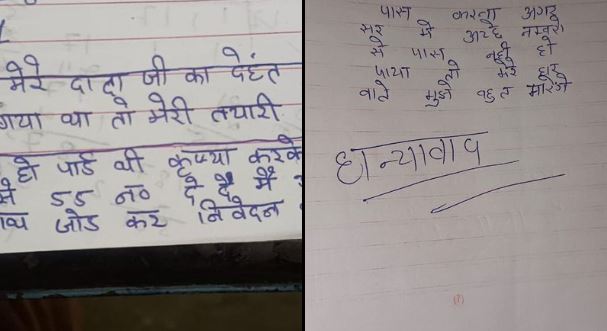 मेरे दादा जी का देहंत
गया था तो मेरी तयारी
हो पाई थी कृप्या करके
में 55 न० दे दें मैं
जोड कर निवेदन
पास करना अगर
सर में अच्छे नम्बरो
से पास नही हो
पाया तो मेरे घर
वाले मुझे बहुत मारेंगे
धन्यावाद